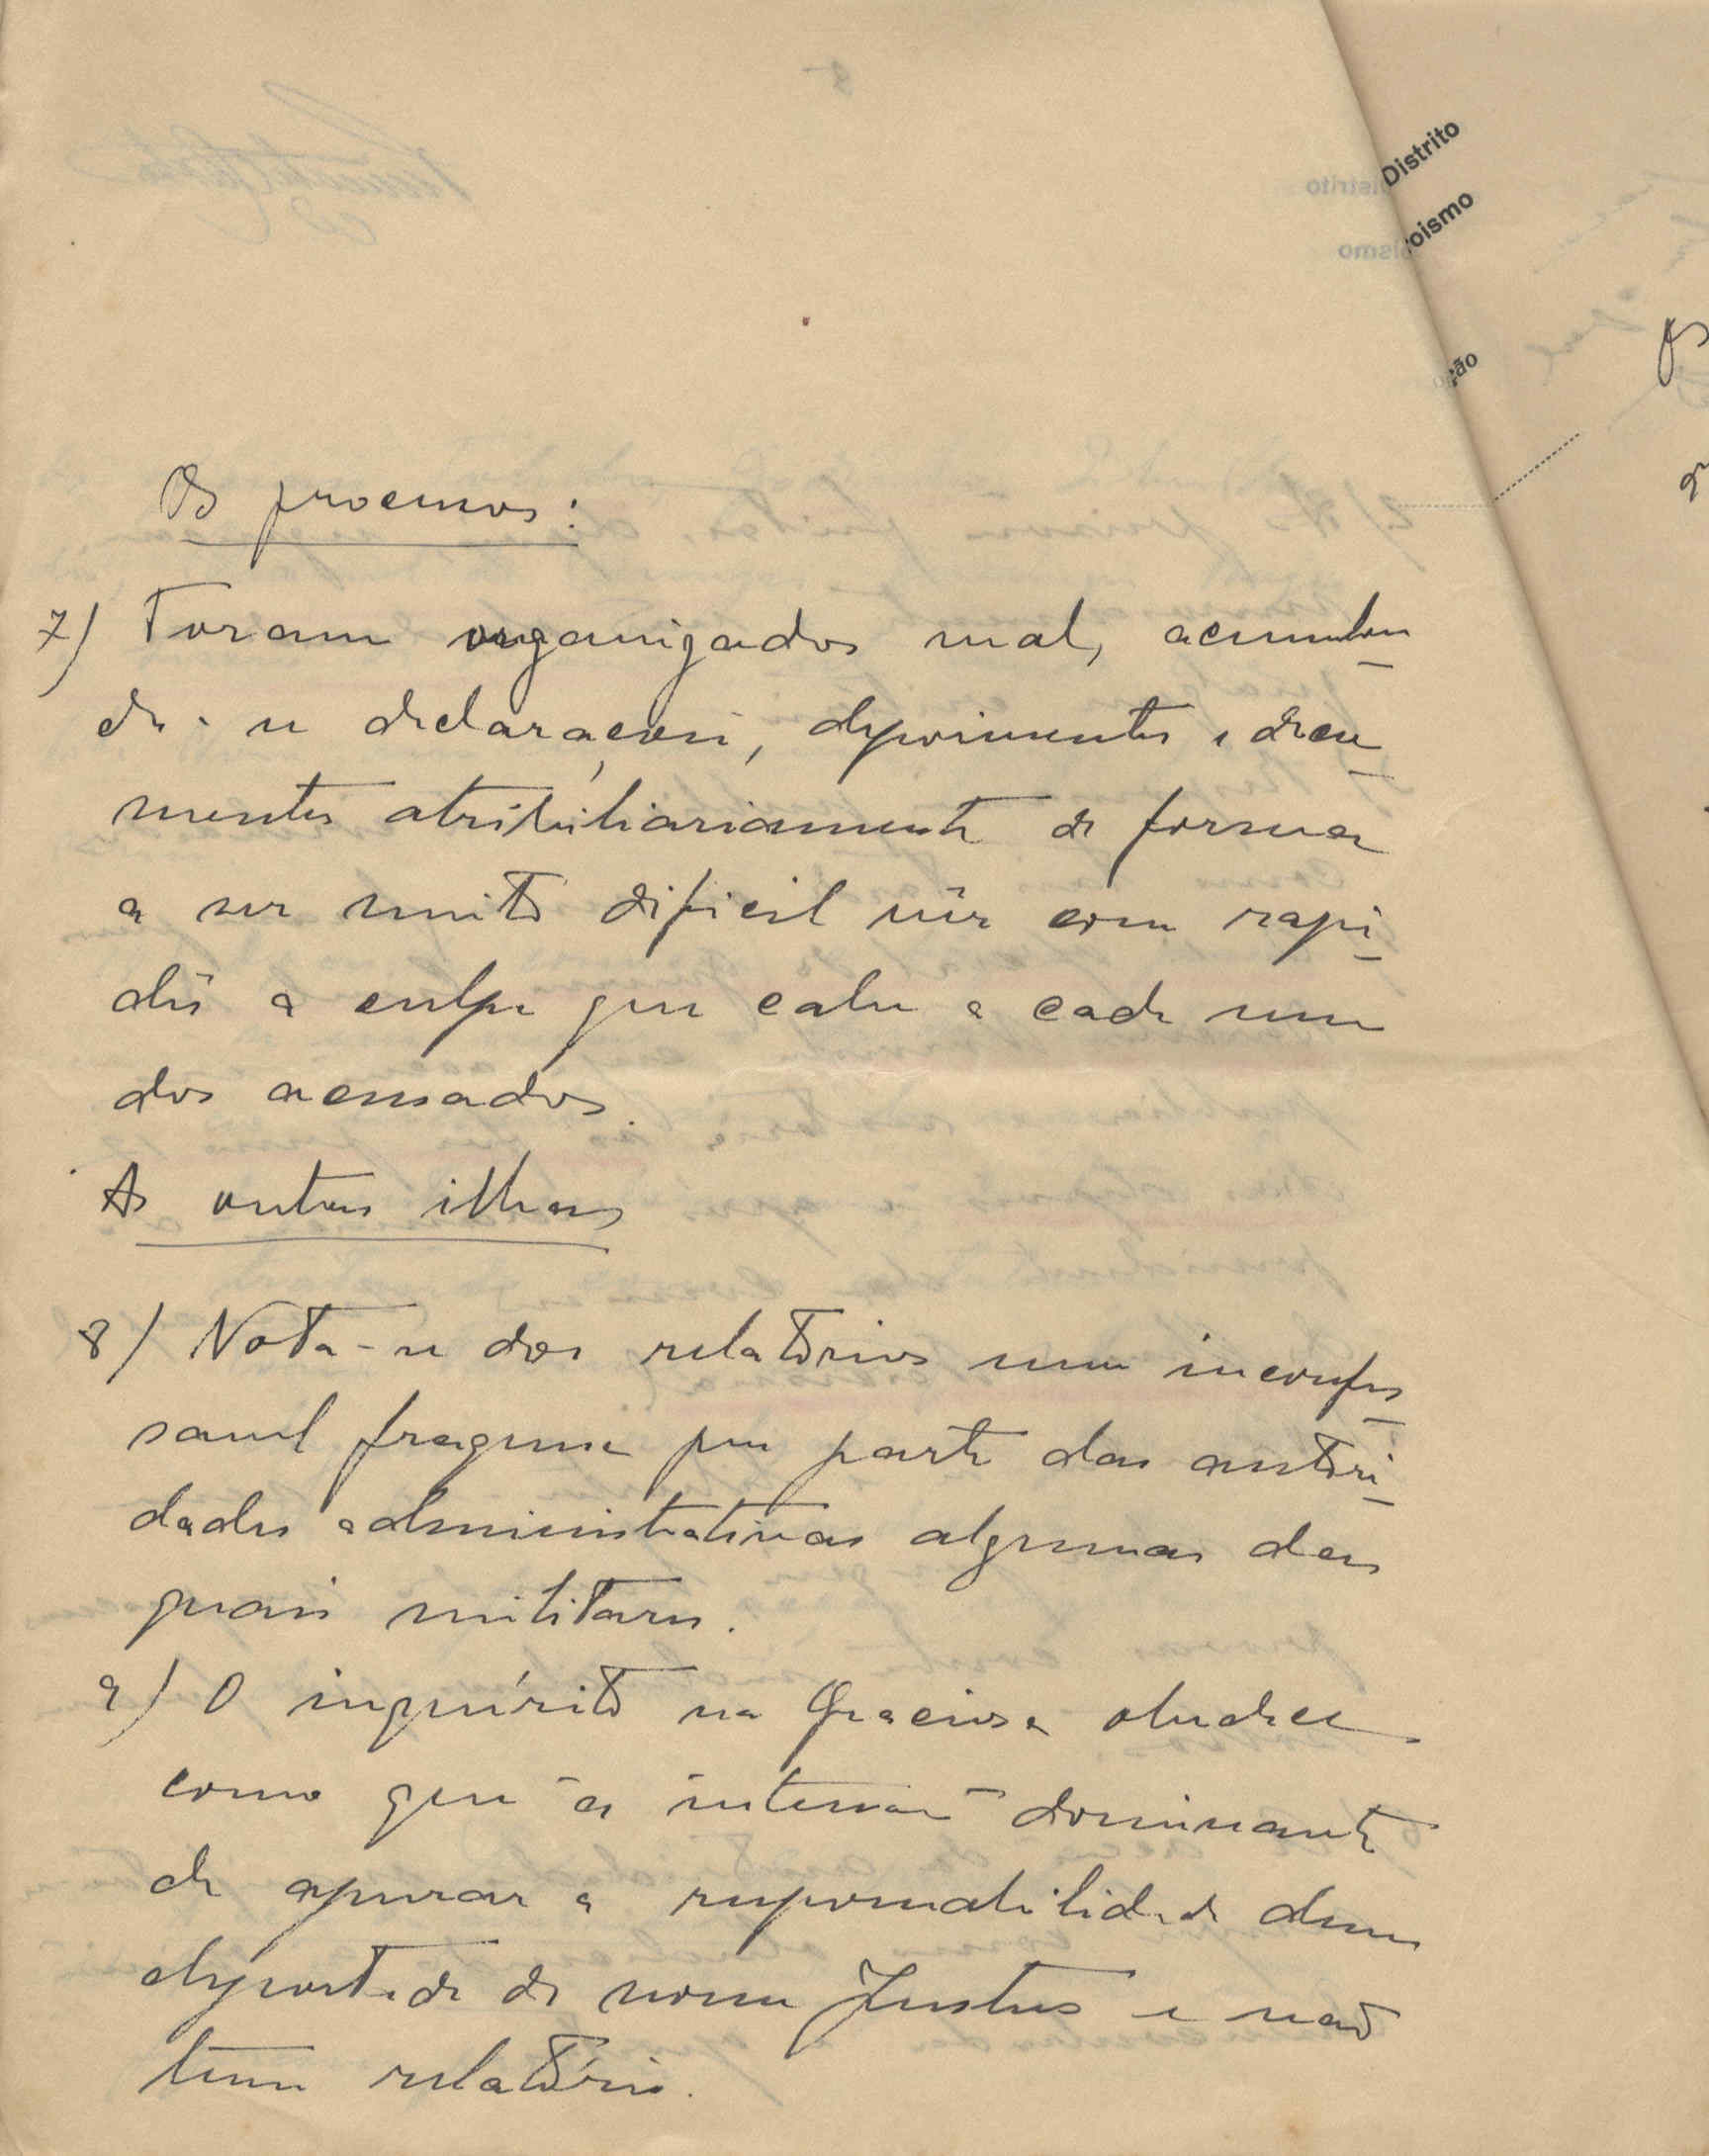 Distrito
oismo
ção
Os processos:
7) Foram organizados mal, acumulan
do-se declarações, depoimentos e docu
mentos atrabiliariamente de forma
a ser muito dificil vêr com rapi
dês a culpa que cabe a cada um
dos acusados.
As outras ilhas
8) Nota-se dos relatorios uma incompes
savel fraqueza por parte das autori
dades administrativas algumas das
quais militares.
9) O inquérito na Graciosa obedeceu
como que á intensão dominante
de apurar a responsabilidade dum
deportado de nome Justus e não
tem relatório.